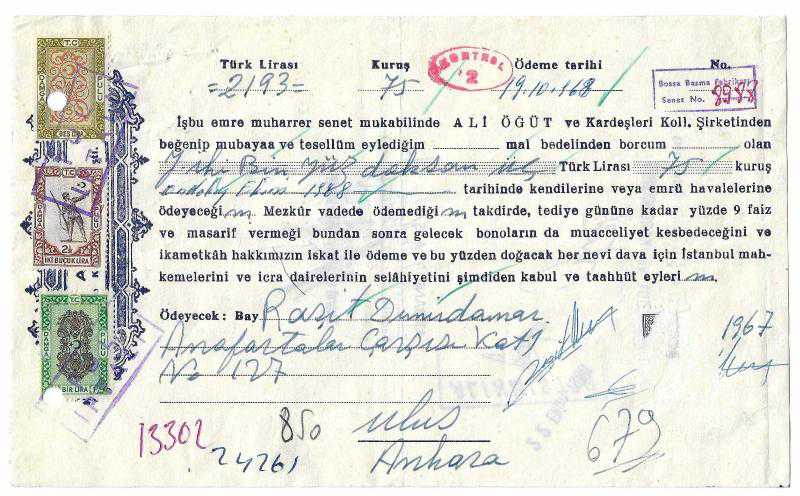 Türk Lirası Kuruş KONTROL 2 Ödeme tarihi No.
=2193= 75 19.10.1968
Bossa Basma Fabrikası
Senet No. 8988
İşbu emre muharrer senet mukabilinde ALİ ÖĞÜT ve Kardeşleri Koll. Şirketinden
beğenip mubayaa ve tesellüm eylediğim mal bedelinden borcum olan
İki Bin yüz doksan üç Türk Lirası 75 kuruş
1968 tarihinde kendilerine veya emrü havalelerine
ödeyeceğim. Mezkûr vadede ödemediğim takdirde, tediye gününe kadar yüzde 9 faiz
ve masarif vermeği bundan sonra gelecek bonoların da muacceliyet kesbedeceğini ve
ikametkâh hakkımızın iskat ile ödeme ve bu yüzden doğacak her nevi dava için İstanbul mah-
kemelerini ve icra dairelerinin selâhiyetini şimdiden kabul ve taahhüt eylerim.
Ödeyecek: Bay Raşit Demirdamar
1967
Anafartalar Çarşısı Kat 1
No 127
13302 850 Ulus 679
24261 Ankara
T.C.
BEŞ LİRA
2½
İKİ BUÇUK LİRA
T.C.
BİR LİRA